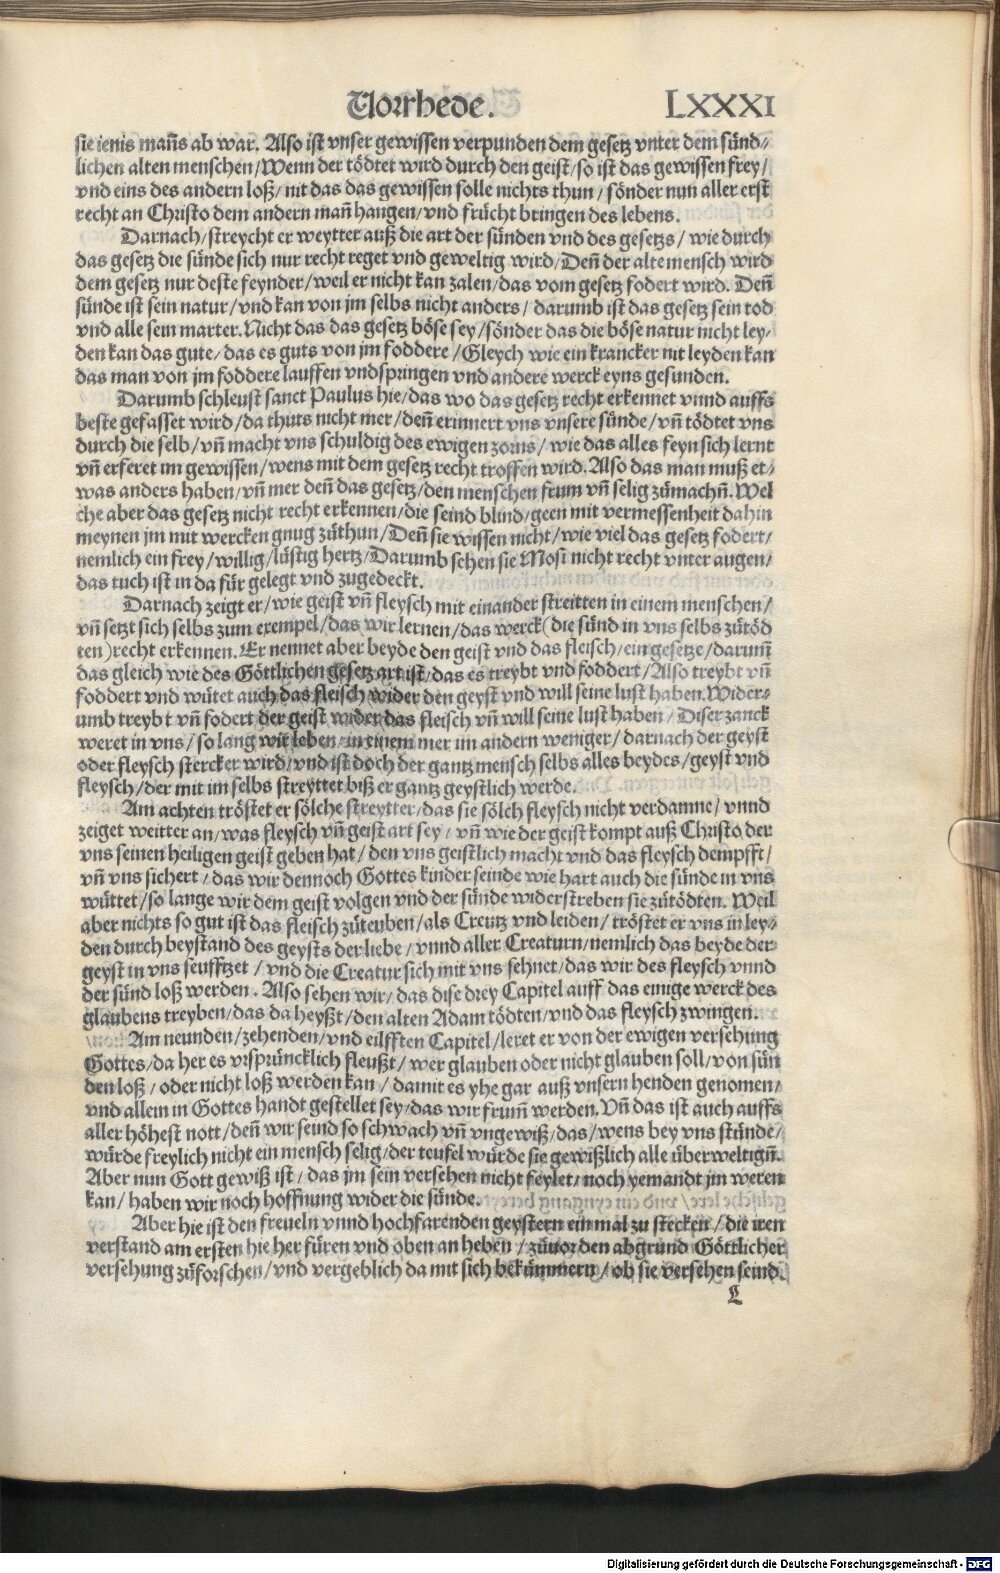 Vorrhede. LXXXI
sie ienis mañs ab war. Also ist vnser gewissen verpunden dem gesetz vnter dem sünd⸗
lichen alten menschen/Wenn der tödtet wird durch den geist/so ist das gewissen frey/
vnd eins des andern loß/nit das das gewissen solle nichts thun/sönder nun aller erst
recht an Christo dem andern mañ hangen/vnd frücht bringen des lebens.
Darnach/streycht er weytter auß die art der sünden vnd des gesetzs/wie durch
das gesetz die sünde sich nur recht reget vnd geweltig wird/Deñ der alte mensch wird
dem gesetz nur deste feynder/weil er nicht kan zalen/das vom gesetz fodert wird. Deñ
sünde ist sein natur/vnd kan von jm selbs nicht anders/darumb ist das gesetz sein tod
vnd alle sein marter. Nicht das das gesetz böse sey/sönder das die böse natur nicht ley⸗
den kan das gute/das es guts von jm foddere/Gleych wie ein krancker nit leyden kan
das man von jm foddere lauffen vnd springen vnd andere werck eyns gesunden.
Darumb schleust sanct Paulus hie/das wo das gesetz recht erkennet vnnd auffs
beste gefasset wird/da thuts nicht mer/deñ erinnert vns vnsere sünde/vñ tödtet vns
durch die selb/vñ macht vns schuldig des ewigen zorns/wie das alles feyn sich lernt
vñ erferet im gewissen/wens mit dem gesetz recht troffen wird. Also das man muß et⸗
was anders haben/vñ mer deñ das gesetz/den menschen frum vñ selig zümachñ. Wel
che aber das gesetz nicht recht erkennen/die seind blind/geen mit vermessenheit dahin
meynen jm mit wercken gnug züthun/Deñ sie wissen nicht/wie viel das gesetz fodert/
nemlich ein frey/willig/lüstig hertz/Darumb sehen sie Mosi nicht recht vnter augen/
das tuch ist in da für gelegt vnd zugedeckt.
Darnach zeigt er/wie geist vñ fleysch mit einander streitten in einem menschen/
vñ setzt sich selbs zum exempel/das wir lernen/das werck (die sünd in vns selbs zütöd
ten) recht erkennen. Er nennet aber beyde den geist vnd das fleisch/ein gesetze/darum̃
das gleich wie des Göttlichen gesetz art ist/das es treybt vnd foddert/Also treybt vñ
foddert vnd wütet auch das fleisch wider den geyst vnd will seine lust haben. Wider⸗
umb treybt vñ fodert der geist wider das fleisch vñ will seine lust haben/Diser zanck
weret in vns/so lang wir leben/in einem mer im andern weniger/darnach der geyst
oder fleysch stercker wird/vnd ist doch der gantz mensch selbs alles beydes/geyst vnd
fleysch/der mit im selbs streyttet biß er gantz geystlich werde.
Am achten tröstet er sölche streytter/das sie sölch fleysch nicht verdamne/vnnd
zeiget weitter an/was fleysch vñ geist art sey/vñ wie der geist kompt auß Christo der
vns seinen heiligen geist geben hat/den vns geistlich macht vnd das fleysch dempfft/
vñ vns sichert/das wir dennoch Gottes kinder seinde wie hart auch die sünde in vns
wüttet/so lange wir dem geist volgen vnd der sünde widerstreben sie zütödten. Weil
aber nichts so gut ist das fleisch züteuben/als Creutz vnd leiden/tröstet er vns in ley⸗
den durch beystand des geysts der liebe/vnnd aller Creaturn/nemlich das beyde der
geyst in vns seufftzet/vnd die Creatur sich mit vns sehnet/das wir des fleysch vnnd
der sünd loß werden. Also sehen wir/das dise drey Capitel auff das einige werck des
glaubens treyben/das da heyßt/den alten Adam tödten/vnd das fleysch zwingen.
Am neunden/zehenden/vnd eilfften Capitel/leret er von der ewigen versehung
Gottes/da her es vrspruncklich fleußt/wer glauben oder nicht glauben soll/von sün
den loß/oder nicht loß werden kan/damit es yhe gar auß vnsern henden genomen/
vnd allein in Gottes handt gestellet sey/das wir frum̃ werden. Vñ das ist auch auffs
aller höhest nott/deñ wir seind so schwach vñ vngewiß/das/wens bey vns stünde/
würde freylich nicht ein mensch selig/der teufel würde sie gewißlich alle überweltigñ.
Aber nun Gott gewiß ist/das jm sein versehen nicht feylet/noch yemandt jm weren
kan/haben wir noch hoffnung wider die sünde.
Aber hie ist den freueln vnnd hochfarenden geystern ein mal zu stecken/die iren
verstand am ersten hie her füren vnd oben an heben/züuor den abgrund Göttlicher
versehung züforschen/vnd vergeblich da mit sich bekümmern/ob sie versehen seind.
L
Digitalisierung gefördert durch die Deutsche Forschungsgemeinschaft - DFG